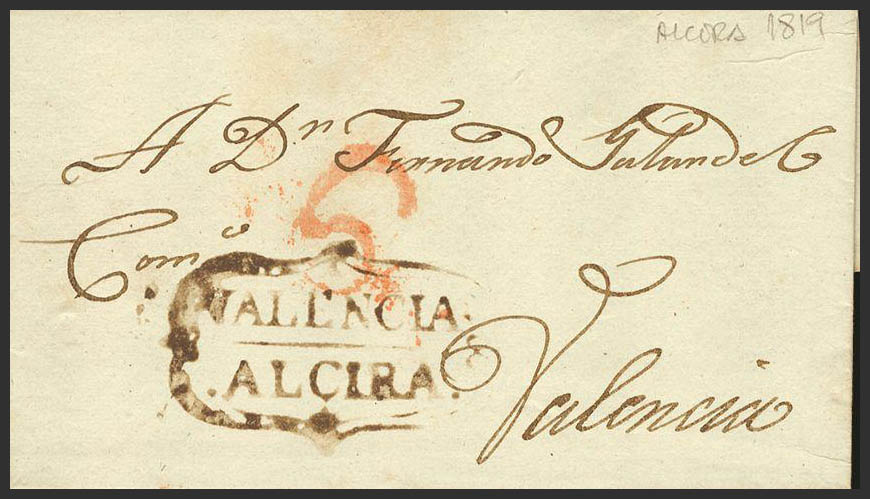 ALCORA 1819
A Dn Fernando Galinde C
Como
5
VALENCIA
.ALCIRA.
Valencia